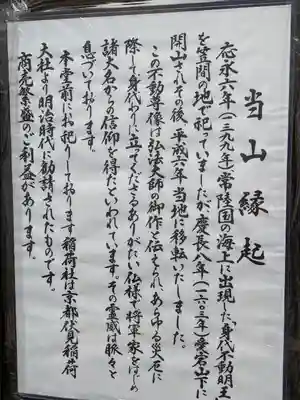 当山縁起
応永六年(一三九九年)常陸国の海上に出現した「身代不動明王」
を笠間の地で祀っていましたが、慶長八年(一六〇三年)愛宕山下に
開山されその後、平成六年当地に移転いたしました。
この不動尊像は弘法大師の御作と伝えられ、あらゆる災厄に
際して身代わりに立ってくださるありがたい仏様で将軍家をはじめ
諸大名からの信仰を得たといわれています。その霊威は脈々と
息づいております。
本堂前にお祀りしております稲荷社は京都伏見稲荷
大社より明治時代に勧請されたものです。
商売繁盛のご利益があります。